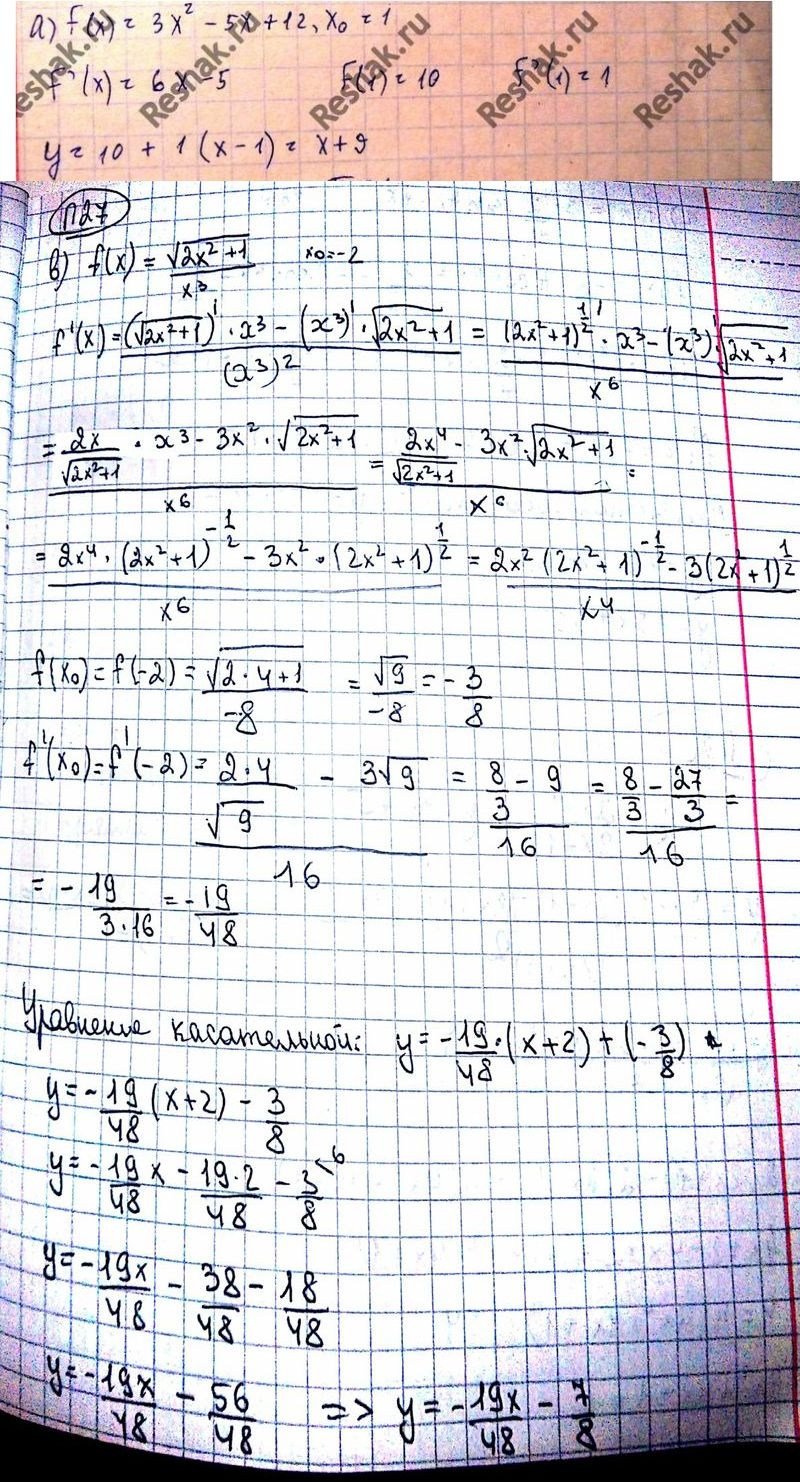 а) f(x) = 3x² - 5x + 12, x₀ = 1
f'(x) = 6x - 5 f(1) = 10 f'(1) = 1
y = 10 + 1(x - 1) = x + 9
Reshak.ru Reshak.ru Reshak.ru Reshak.ru
П27
в) f(x) = √(2x² + 1) / x³ x₀ = -2
f'(x) = ((√(2x²+1))' · x³ - (x³)' · √(2x²+1)) / (x³)² = ((2x²+1)^(1/2)' · x³ - (x³)' · √(2x²+1)) / x⁶
= (2x/√(2x²+1) · x³ - 3x² · √(2x²+1)) / x⁶ = (2x⁴/√(2x²+1) - 3x² · √(2x²+1)) / x⁶ =
= (2x⁴ · (2x²+1)^(-1/2) - 3x² · (2x²+1)^(1/2)) / x⁶ = (2x² (2x²+1)^(-1/2) - 3(2x²+1)^(1/2)) / x⁴
f(x₀) = f(-2) = √(2·4+1) / -8 = √9 / -8 = - 3/8
f'(x₀) = f'(-2) = (2·4/√9 - 3√9) / 16 = (8/3 - 9) / 16 = (8/3 - 27/3) / 16 =
= - 19/(3·16) = - 19/48
Уравнение касательной: y = - 19/48 · (x+2) + (- 3/8)
y = - 19/48 (x+2) - 3/8
y = - 19/48 x - 19·2/48 - 3/8 \6
y = - 19x/48 - 38/48 - 18/48
y = - 19x/48 - 56/48 => y = - 19x/48 - 7/8